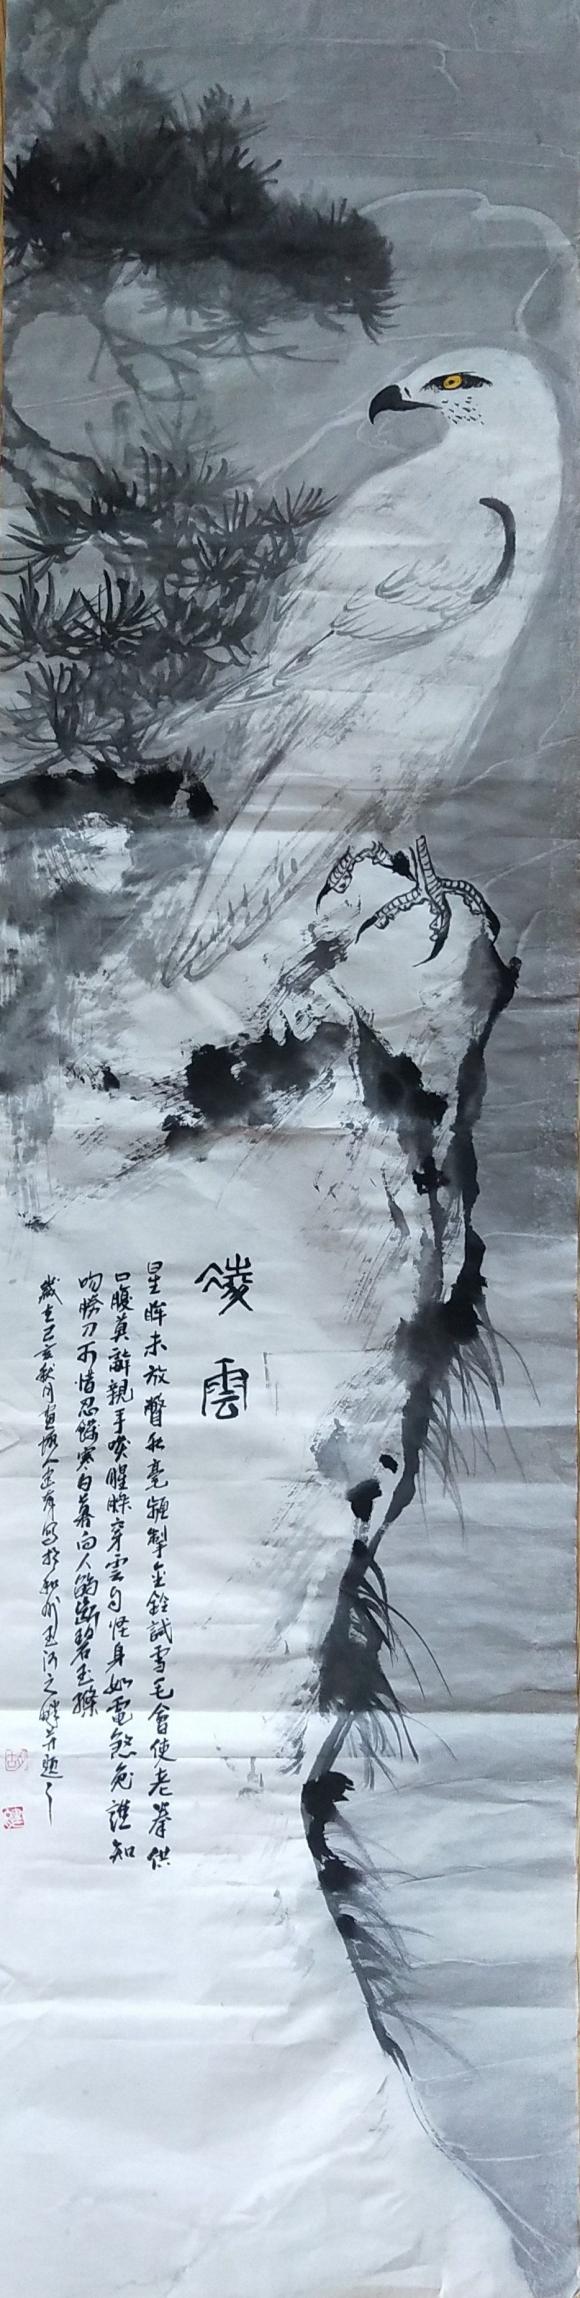 淩雲
星眸未放瞥秋毫頻掣金鈴試雪毛會使老拳供
口腹莫辭親手啖腥臊穿雲自怪身如電煞兔誰知
吻勝刀可惜忍饑寒日暮向人鵮斷碧玉絛
歲在己亥秋月畫人寫於和州玉河之畔并題之